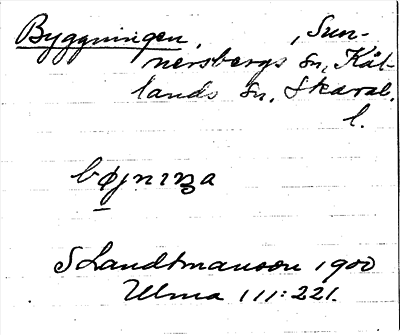 Byggningen, , Sun-
nersbergs sn, Kål-
lands hd, Skarab.
l.
bøjnıŋa
S Landtmanson 1900
Ulma 111:221.